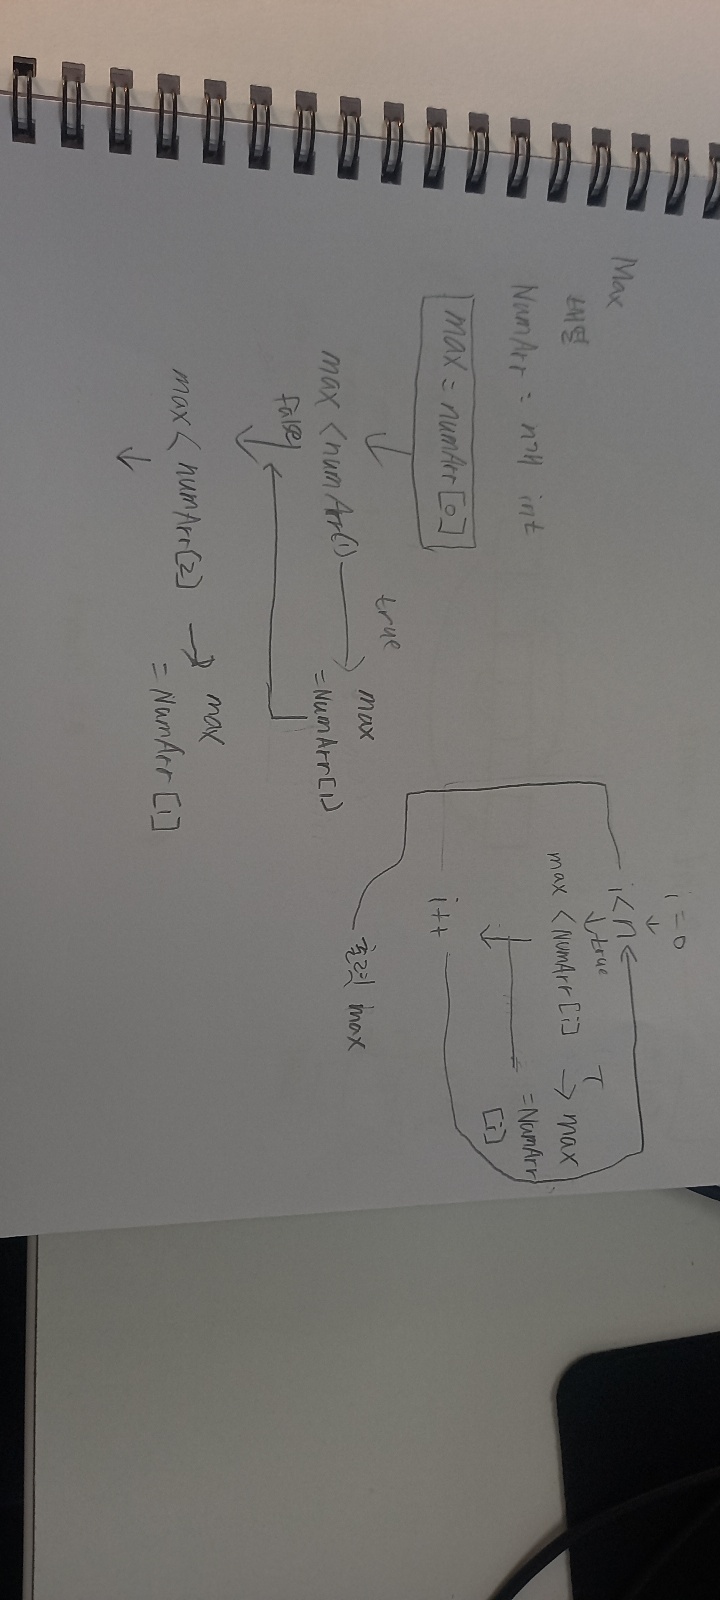 Max
배열
NumArr = n개 int
max = numArr[0]
↓
max < numArr(1) → true max = NumArr[1]
false
↓
max < numArr[2] → max = NumArr[i]
↓
i = 0
↓
i < n
↓ true
max < NumArr[i] T → max
= NumArr
[i]
↓
i++
출력 max